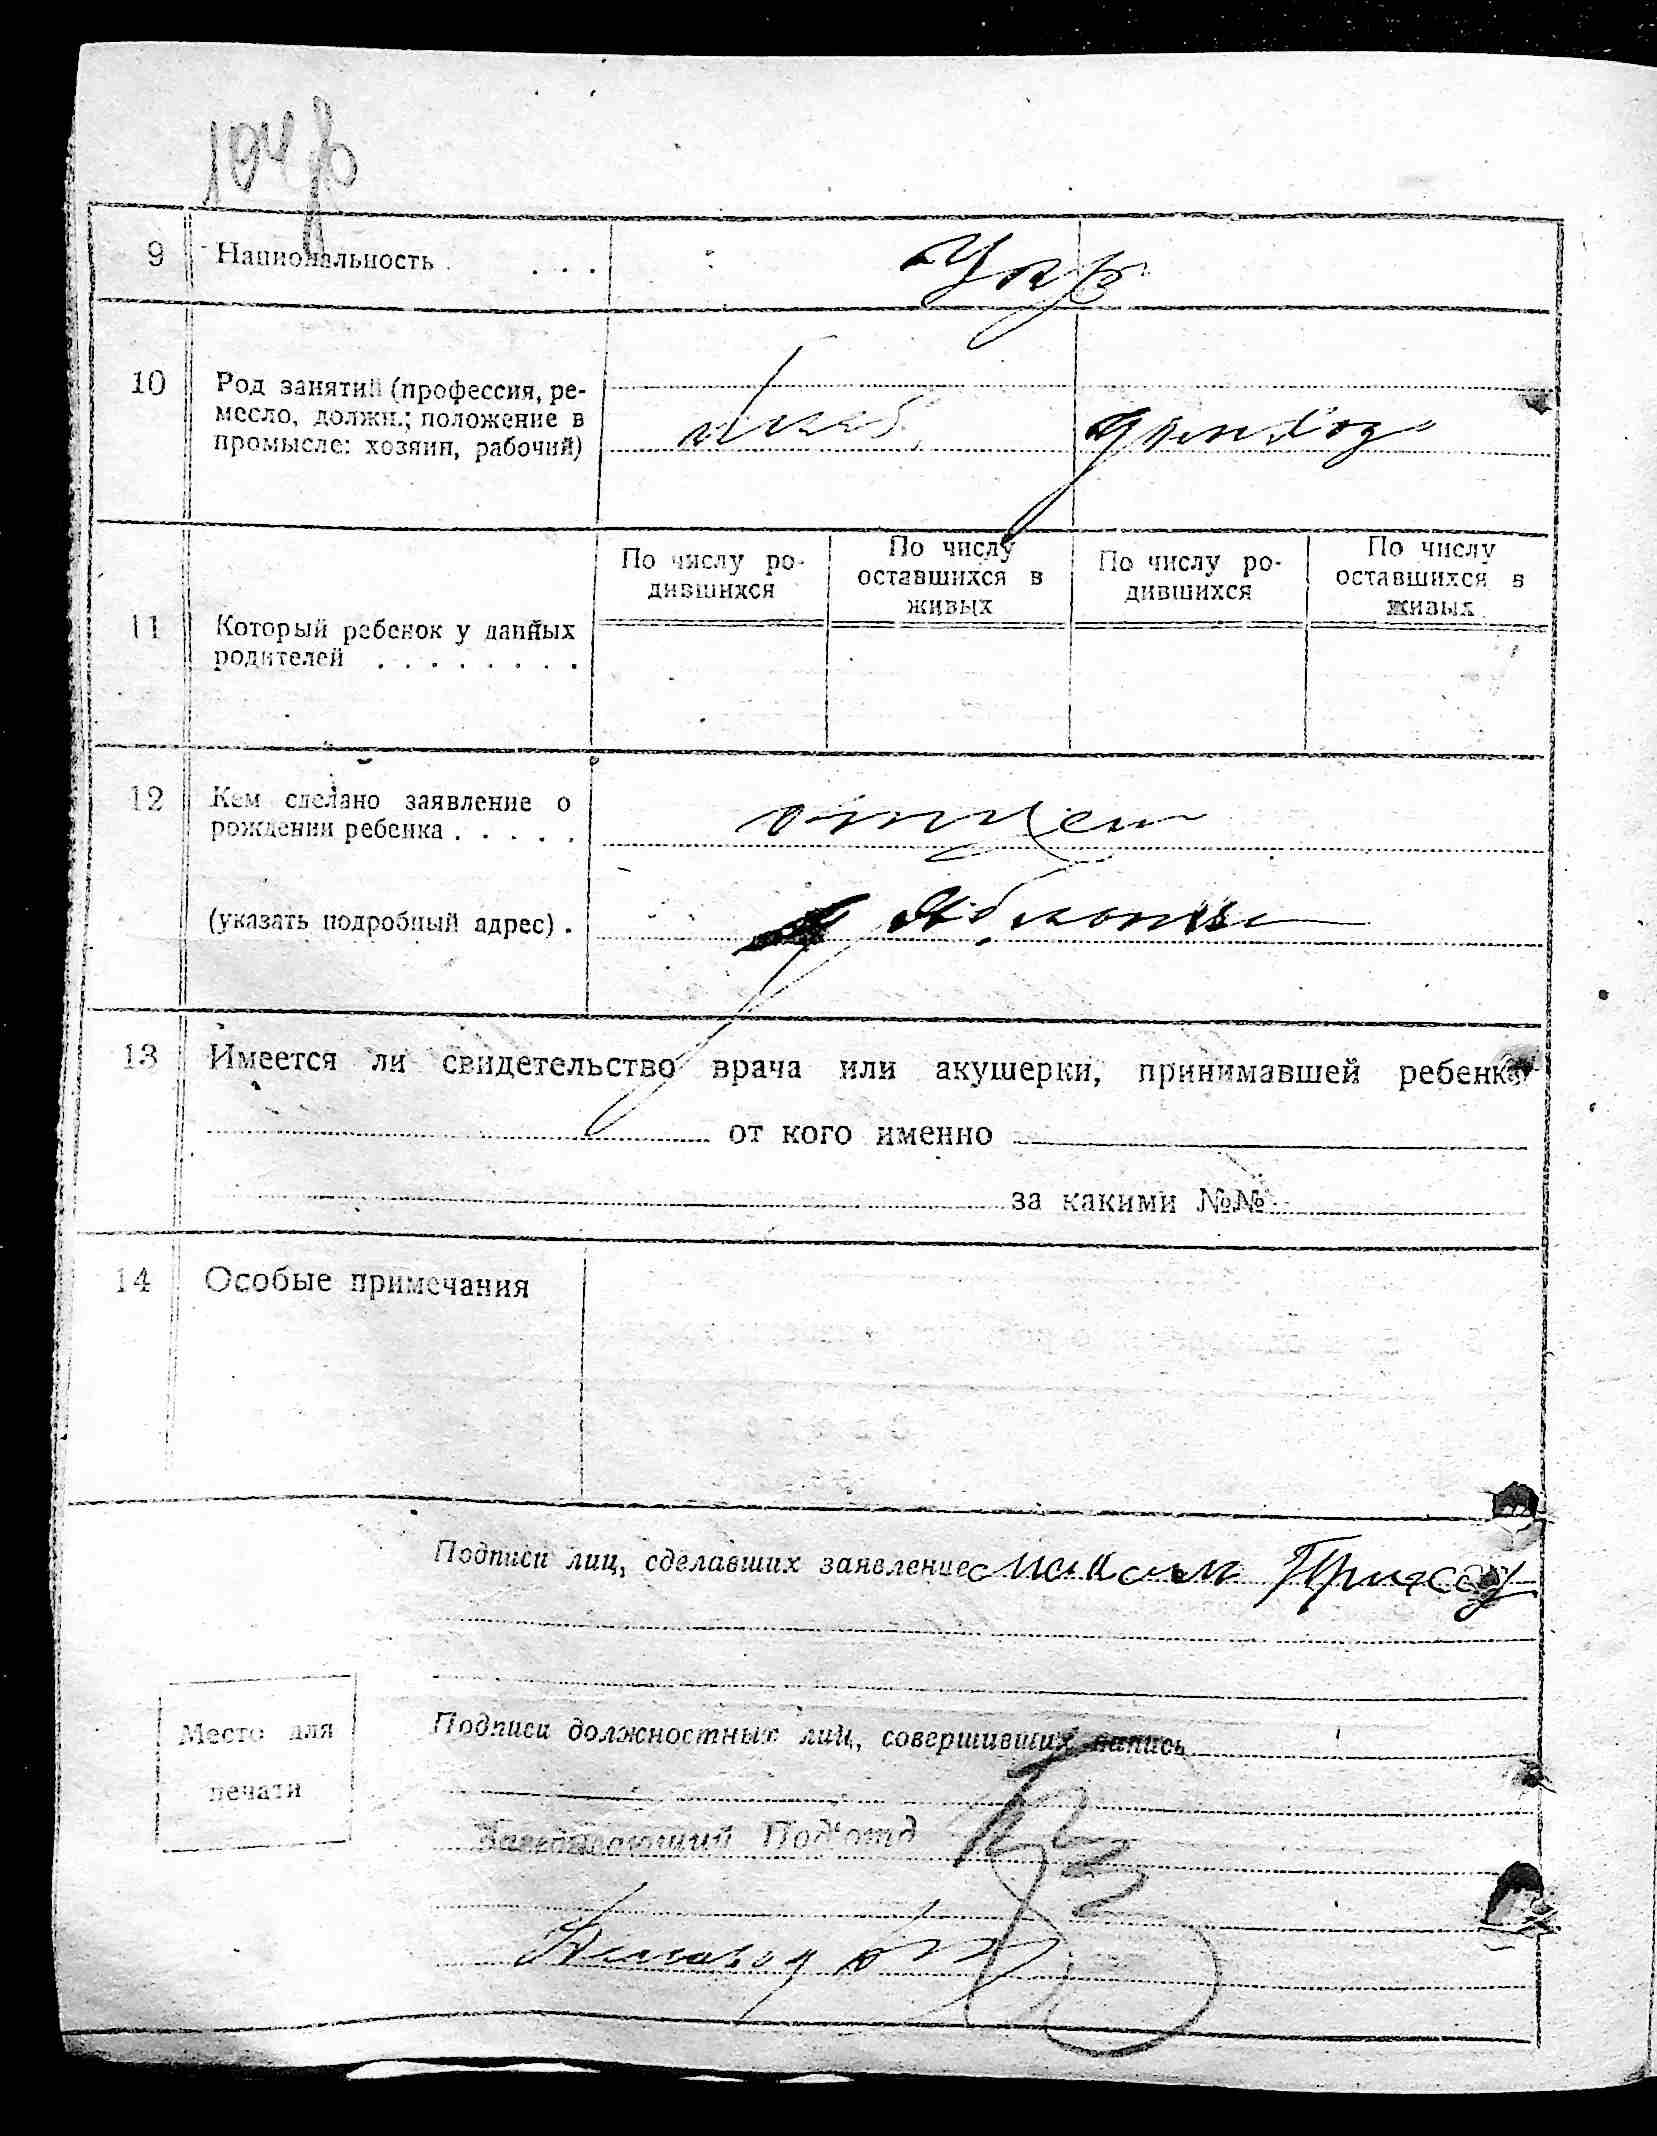 9 Национальность . . . . Укр
10 Род занятий (профессия, ре-
месло, должн.; положение в
промысле: хозяин, рабочий)
По числу ро-
дившихся
По числу
оставшихся в
живых
По числу ро-
дившихся
По числу
оставшихся в
живых
11 Который ребенок у данных
родителей . . . . . . . .
12 Кем сделано заявление о
рождении ребенка . . . . . отцем
(указать подробный адрес) .
13 Имеется ли свидетельство врача или акушерки, принимавшей ребенка
от кого именно
за какими №№
14 Особые примечания
Подписи лиц, сделавших заявление
Место для
печати
Подписи должностных лиц, совершивших запись
Заведывающий Под'отд